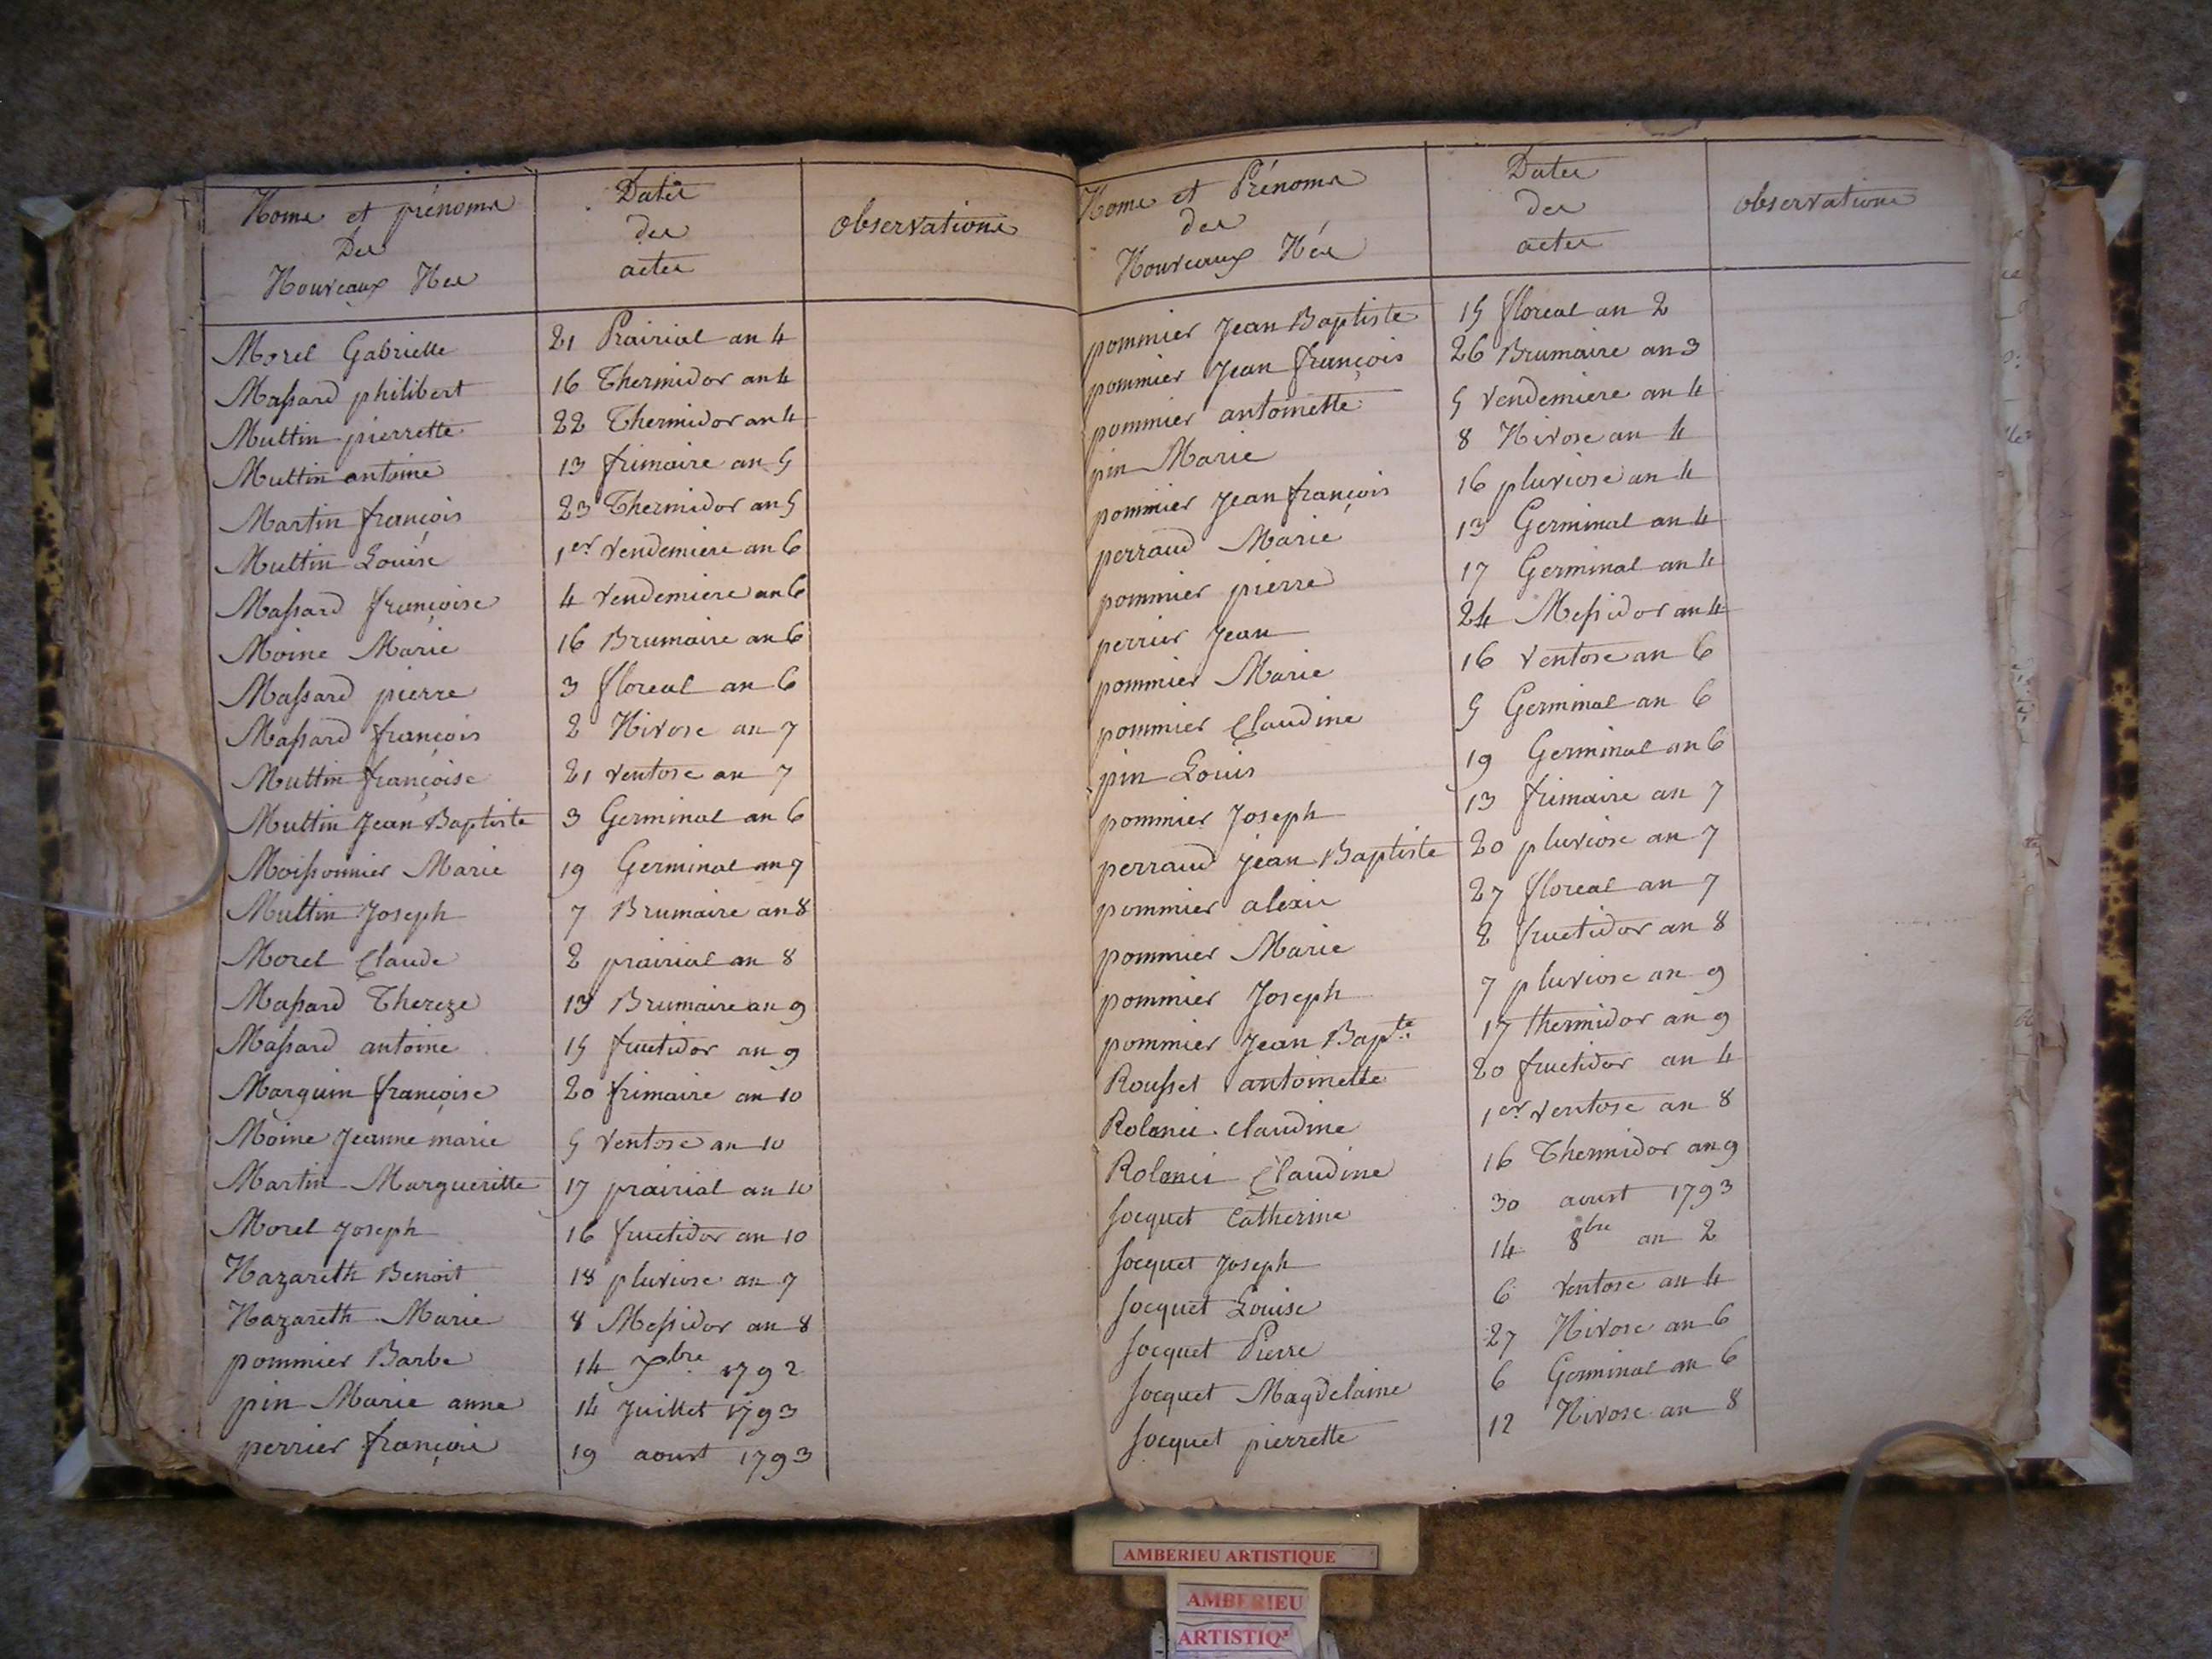 Noms et prénoms
Des
Nouveaux Nés
Dates
des
actes
observations
Morel Gabrielle 21 Prairial an 4
Massard philibert 16 Thermidor an 4
Multin pierrette 22 Thermidor an 4
Multin antoine 13 frimaire an 5
Martin françois 23 Thermidor an 5
Multin Louise 1er vendemiere an 6
Massard françoise 4 vendemiere an 6
Moine Marie 16 Brumaire an 6
Massard pierre 3 floreal an 6
Massard françois 2 Nivose an 7
Multin françoise 21 ventose an 7
Multin Jean Baptiste 3 Germinal an 6
Moissonnier Marie 19 Germinal an 7
Multin Joseph 7 Brumaire an 8
Morel Claude 2 prairial an 8
Massard Thereze 13 Brumaire an 9
Massard antoine 15 fructidor an 9
Marguin françoise 20 frimaire an 10
Moine Jeanne marie 5 ventose an 10
Martin Margueritte 17 prairial an 10
Morel Joseph 16 fructidor an 10
Nazareth Benoit 18 pluviose an 7
Nazareth Marie 8 Messidor an 8
pommier Barbe 14 bre 1792
pin Marie anne 14 Juillet 1793
perrier françois 19 aoust 1793
Noms et Prénoms
des
Nouveaux Nés
Dates
des
actes
observations
pommier Jean Baptiste 15 floreal an 2
pommier Jean françois 26 Brumaire an 3
pommier antoinette 5 vendemiere an 4
pin Marie 8 Nivose an 4
pommier Jean françois 16 pluviose an 4
perraud Marie 13 Germinal an 4
pommier pierre 17 Germinal an 4
perrier Jean 24 Messidor an 4
pommier Marie 16 ventose an 6
pommier Claudine 5 Germinal an 6
pin Louis 19 Germinal an 6
pommier Joseph 13 frimaire an 7
perraud Jean Baptiste 20 pluviose an 7
pommier alexis 27 floreal an 7
pommier Marie 2 fructidor an 8
pommier Joseph 7 pluviose an 9
pommier Jean Bapte 17 thermidor an 9
Rousset antoinette 20 fructidor an 4
Rolanis claudine 1er ventose an 8
Rolanis Claudine 16 Thermidor an 9
Socquet Catherine 30 aoust 1793
Socquet Joseph 14 8bre an 2
Socquet Louise 6 ventose an 4
Socquet Pierre 27 Nivose an 6
Socquet Magdelaine 6 Germinal an 6
Socquet pierrette 12 Nivose an 8
AMBERIEU ARTISTIQUE
AMBERIEU
ARTISTIQ